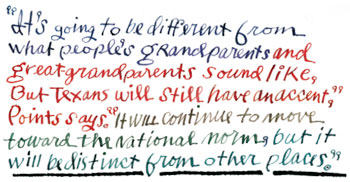 "It's going to be different from
what people's grandparents and
great grandparents sound like,
But Texans will still have an accent,"
Points says. "It will continue to move
toward the national norm, but it
will be distinct from other places."